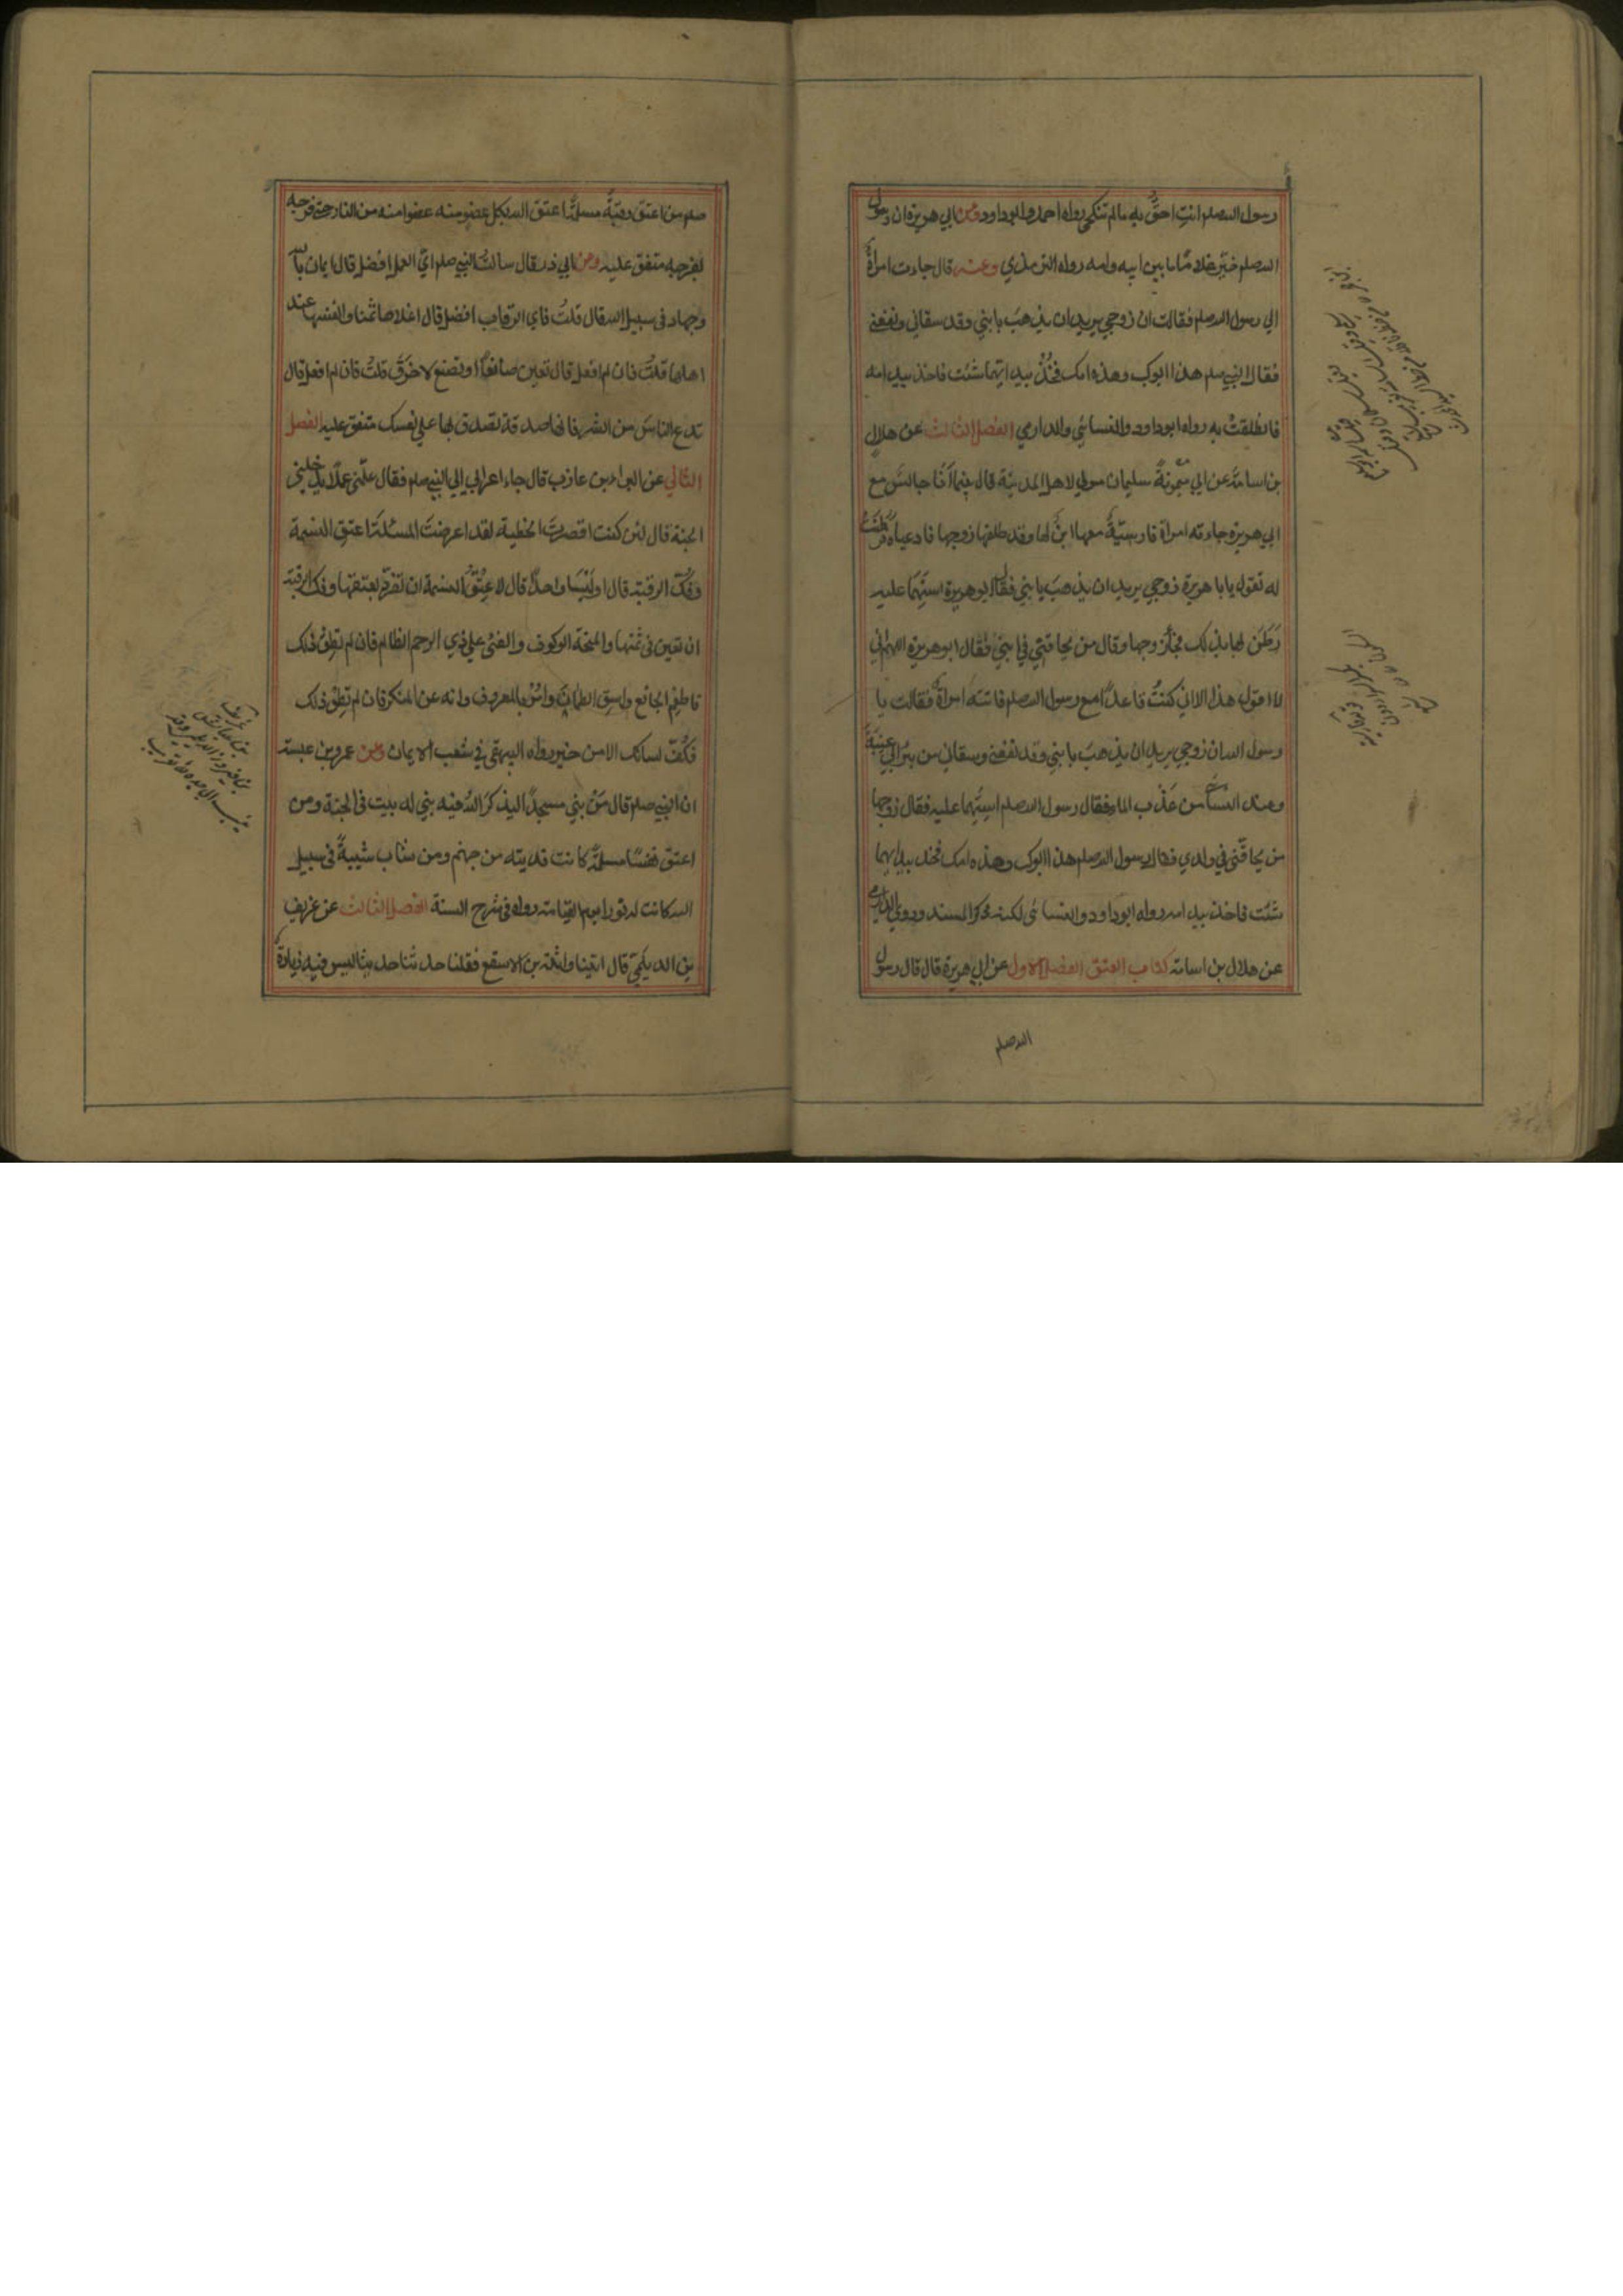 رسول الله صلعم انتِ احقُّ به مالم تنكحي رواه احمد وابوداود وعن ابي هريرة ان رسول
الله صلعم خيّر غلامًا بين ابيه وامه رواه الترمذي وعنه قال جاءت امرأةٌ
الي رسول الله صلعم فقالت ان زوجي يريد ان يذهبَ بابني وقد سقاني ونفعني
فقال النبي صلعم هذا ابوك وهذه امك فخُذْ بيد ايّهما شئت فاخذ بيد امه
فانطلقتْ به رواه ابوداود والنسائي والدارمي الفصل الثالث عن هلال
بن اسامةَ عن ابي ميمونةَ سليمان مولي لاهل المدينة قال بينما اَنا جالسٌ مع
ابي هريرة جاءته امرأة فارسيّةٌ معها ابنٌ لها وقد طلقها زوجها فادعياه فرطنتْ
له تقول يابا هريرة زوجي يريد ان يذهبَ بابني فقال ابو هريرة استَهِما عليه
رَطَن لها بذلك فجاء زوجها وقال من يحاقّني في ابني فقال ابوهريرة اللهم اني
لا اقول هذا الا اني كنتُ قاعدًا مع رسول الله صلعم فاتته امرأةٌ فقالت يا
رسول الله ان زوجي يريد ان يذهبَ بابني وقد نفعني وسقاني من بئر ابي عِنَبَةَ
وعند النسائي من عَذْب الماء فقال رسول الله صلعم استَهِما عليه فقال زوجها
من يحاقّني في ولدي فقال رسول الله صلعم هذا ابوك وهذه امك فخذ بيد ايهما
شئت فاخذ بيد امه رواه ابوداود والنسائي لكنه ذكر المسند وروي الدارمي
عن هلال بن اسامة كتاب العتق الفصل الاول عن ابي هريرة قال قال رسول
الله صلعم
صلعم من اعتق رقبةً مسلمةً اعتق الله بكل عضو منه عضوا منه من النار حتي فرجه
بفرجه متفق عليه وعن ابي ذر قال سالتُ النبي صلعم ايّ العمل افضل قال ايمان بالله
وجهاد في سبيل الله قال قلتُ فاي الرقاب افضل قال اغلاها ثمنا وانفسها عند
اهلها قلتُ فان لم افعل قال تعين صانعًا او تصنع لاخرَقَ قلتُ فان لم افعل قال
تدع الناسَ من الشر فانها صدقة تصدق بها علي نفسك متفق عليه الفصل
الثاني عن البراء بن عازب قال جاء اعرابي الي النبي صلعم فقال علّمني عملًا يدخلني
الجنة قال لئن كنت اقصرتَ الخطبة لقد اعرضتَ المسئلةَ اعتق النسمة
وفكّ الرقبة قال اوليسا واحدًا قال لا عِتْقُ النسمة ان تفرّد بعتقها وفك الرقبة
ان تعين في ثمنها والمنحة الوكوف والفئ علي ذي الرحم الظالم فان لم تُطق ذلك
فاطعِمِ الجائع واسقِ الظمآنَ وامُرْ بالمعروف وانه عن المنكر فان لم تطق ذلك
فكُفَّ لسانك الا من خير رواه البيهقي في شعب الايمان وعن عمرو بن عبسة
ان النبي صلعم قال مَن بني مسجدًا ليذكرَ اللهُ فيه بني له بيت في الجنة ومن
اعتق نفسًا مسلمةً كانت فديته من جهنم ومن شاب شيبةً في سبيل
الله كانت له نورا يوم القيامة رواه في شرح السنة الفصل الثالث عن غريف
بن الديلميّ قال اتينا واثلة بن الاسقع فقلنا حدثنا حديثا ليس فيه زيادةٌ